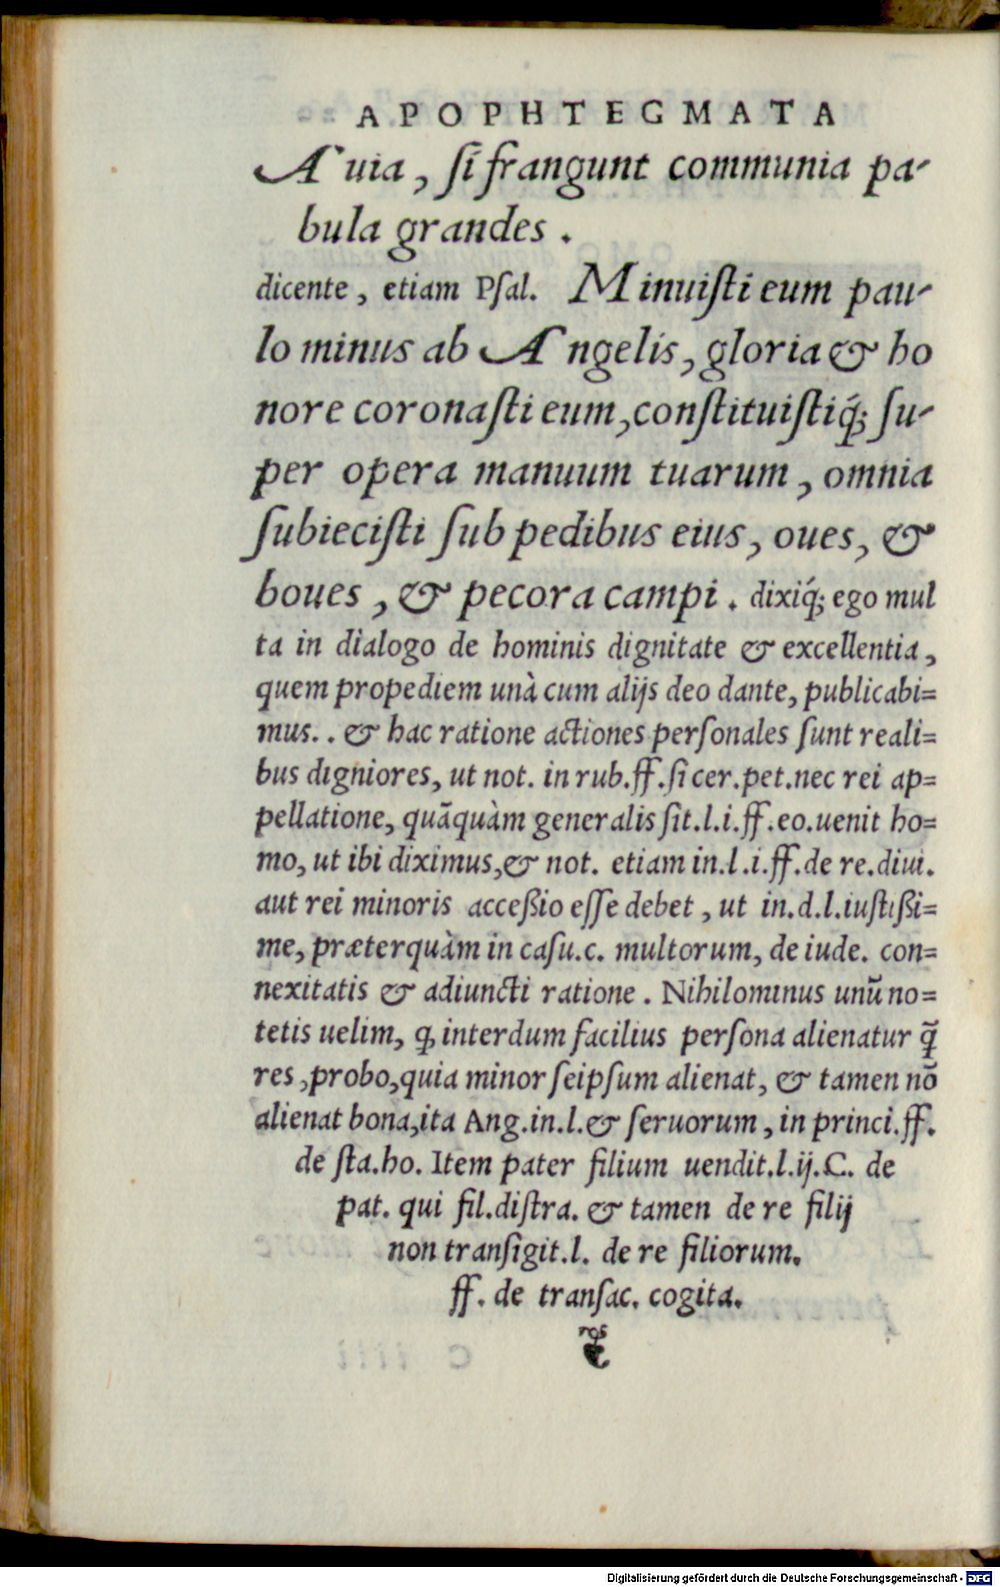 APOPHTEGMATA
Auia, si frangunt communia pa-
bula grandes.
dicente, etiam Psal. Minuisti eum pau-
lo minus ab Angelis, gloria & ho
nore coronasti eum, constituistiq́; su-
per opera manuum tuarum, omnia
subiecisti sub pedibus eius, oues, &
boues, & pecora campi. dixiq́; ego mul
ta in dialogo de hominis dignitate & excellentia,
quem propediem unà cum alijs deo dante, publicabi=
mus.. & hac ratione actiones personales sunt reali=
bus digniores, ut not. in rub.ff.si cer.pet.nec rei ap=
pellatione, quãquàm generalis sit.l.i.ff.eo.uenit ho=
mo, ut ibi diximus, & not. etiam in.l.i.ff.de re.diui.
aut rei minoris acceßio esse debet, ut in.d.l.iustißi=
me, præterquàm in casu.c. multorum, de iude. con=
nexitatis & adiuncti ratione. Nihilominus unũ no=
tetis uelim, ꝙ interdum facilius persona alienatur q̃
res, probo, quia minor seipsum alienat, & tamen nõ
alienat bona, ita Ang.in.l.& seruorum, in princi.ff.
de sta.ho. Item pater filium uendit.l.ij.C. de
pat. qui fil.distra. & tamen de re filij
non transigit.l. de re filiorum.
ff. de transac. cogita.
Digitalisierung gefördert durch die Deutsche Forschungsgemeinschaft - DFG